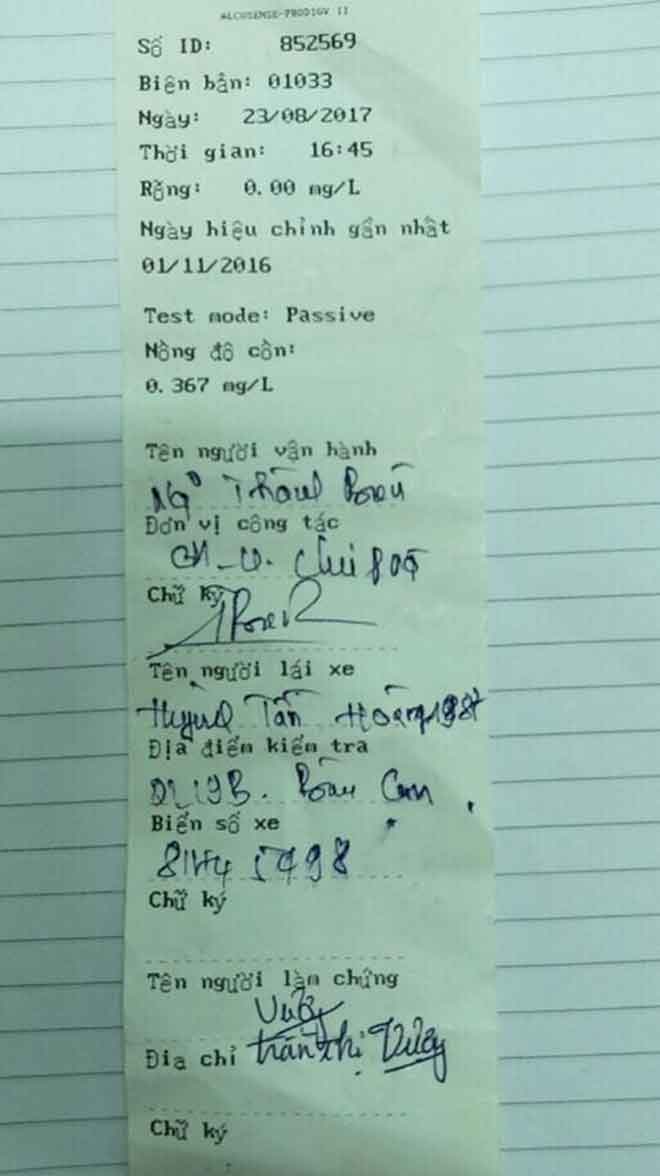 ALCOSENSE-PRODIGY II
Số ID: 852569
Biên bản: 01033
Ngày: 23/08/2017
Thời gian: 16:45
Rỗng: 0.00 mg/L
Ngày hiệu chỉnh gần nhất
01/11/2016
Test mode: Passive
Nồng độ cồn:
0.367 mg/L
Tên người vận hành
Ngô
Đơn vị công tác
Chữ ký
Tên người lái xe
Huỳnh Tấn Hoàng 1987
Địa điểm kiểm tra
QL19B.
Biển số xe
81H4
Chữ ký
Tên người làm chứng
Địa chỉ Trần Thị
Chữ ký